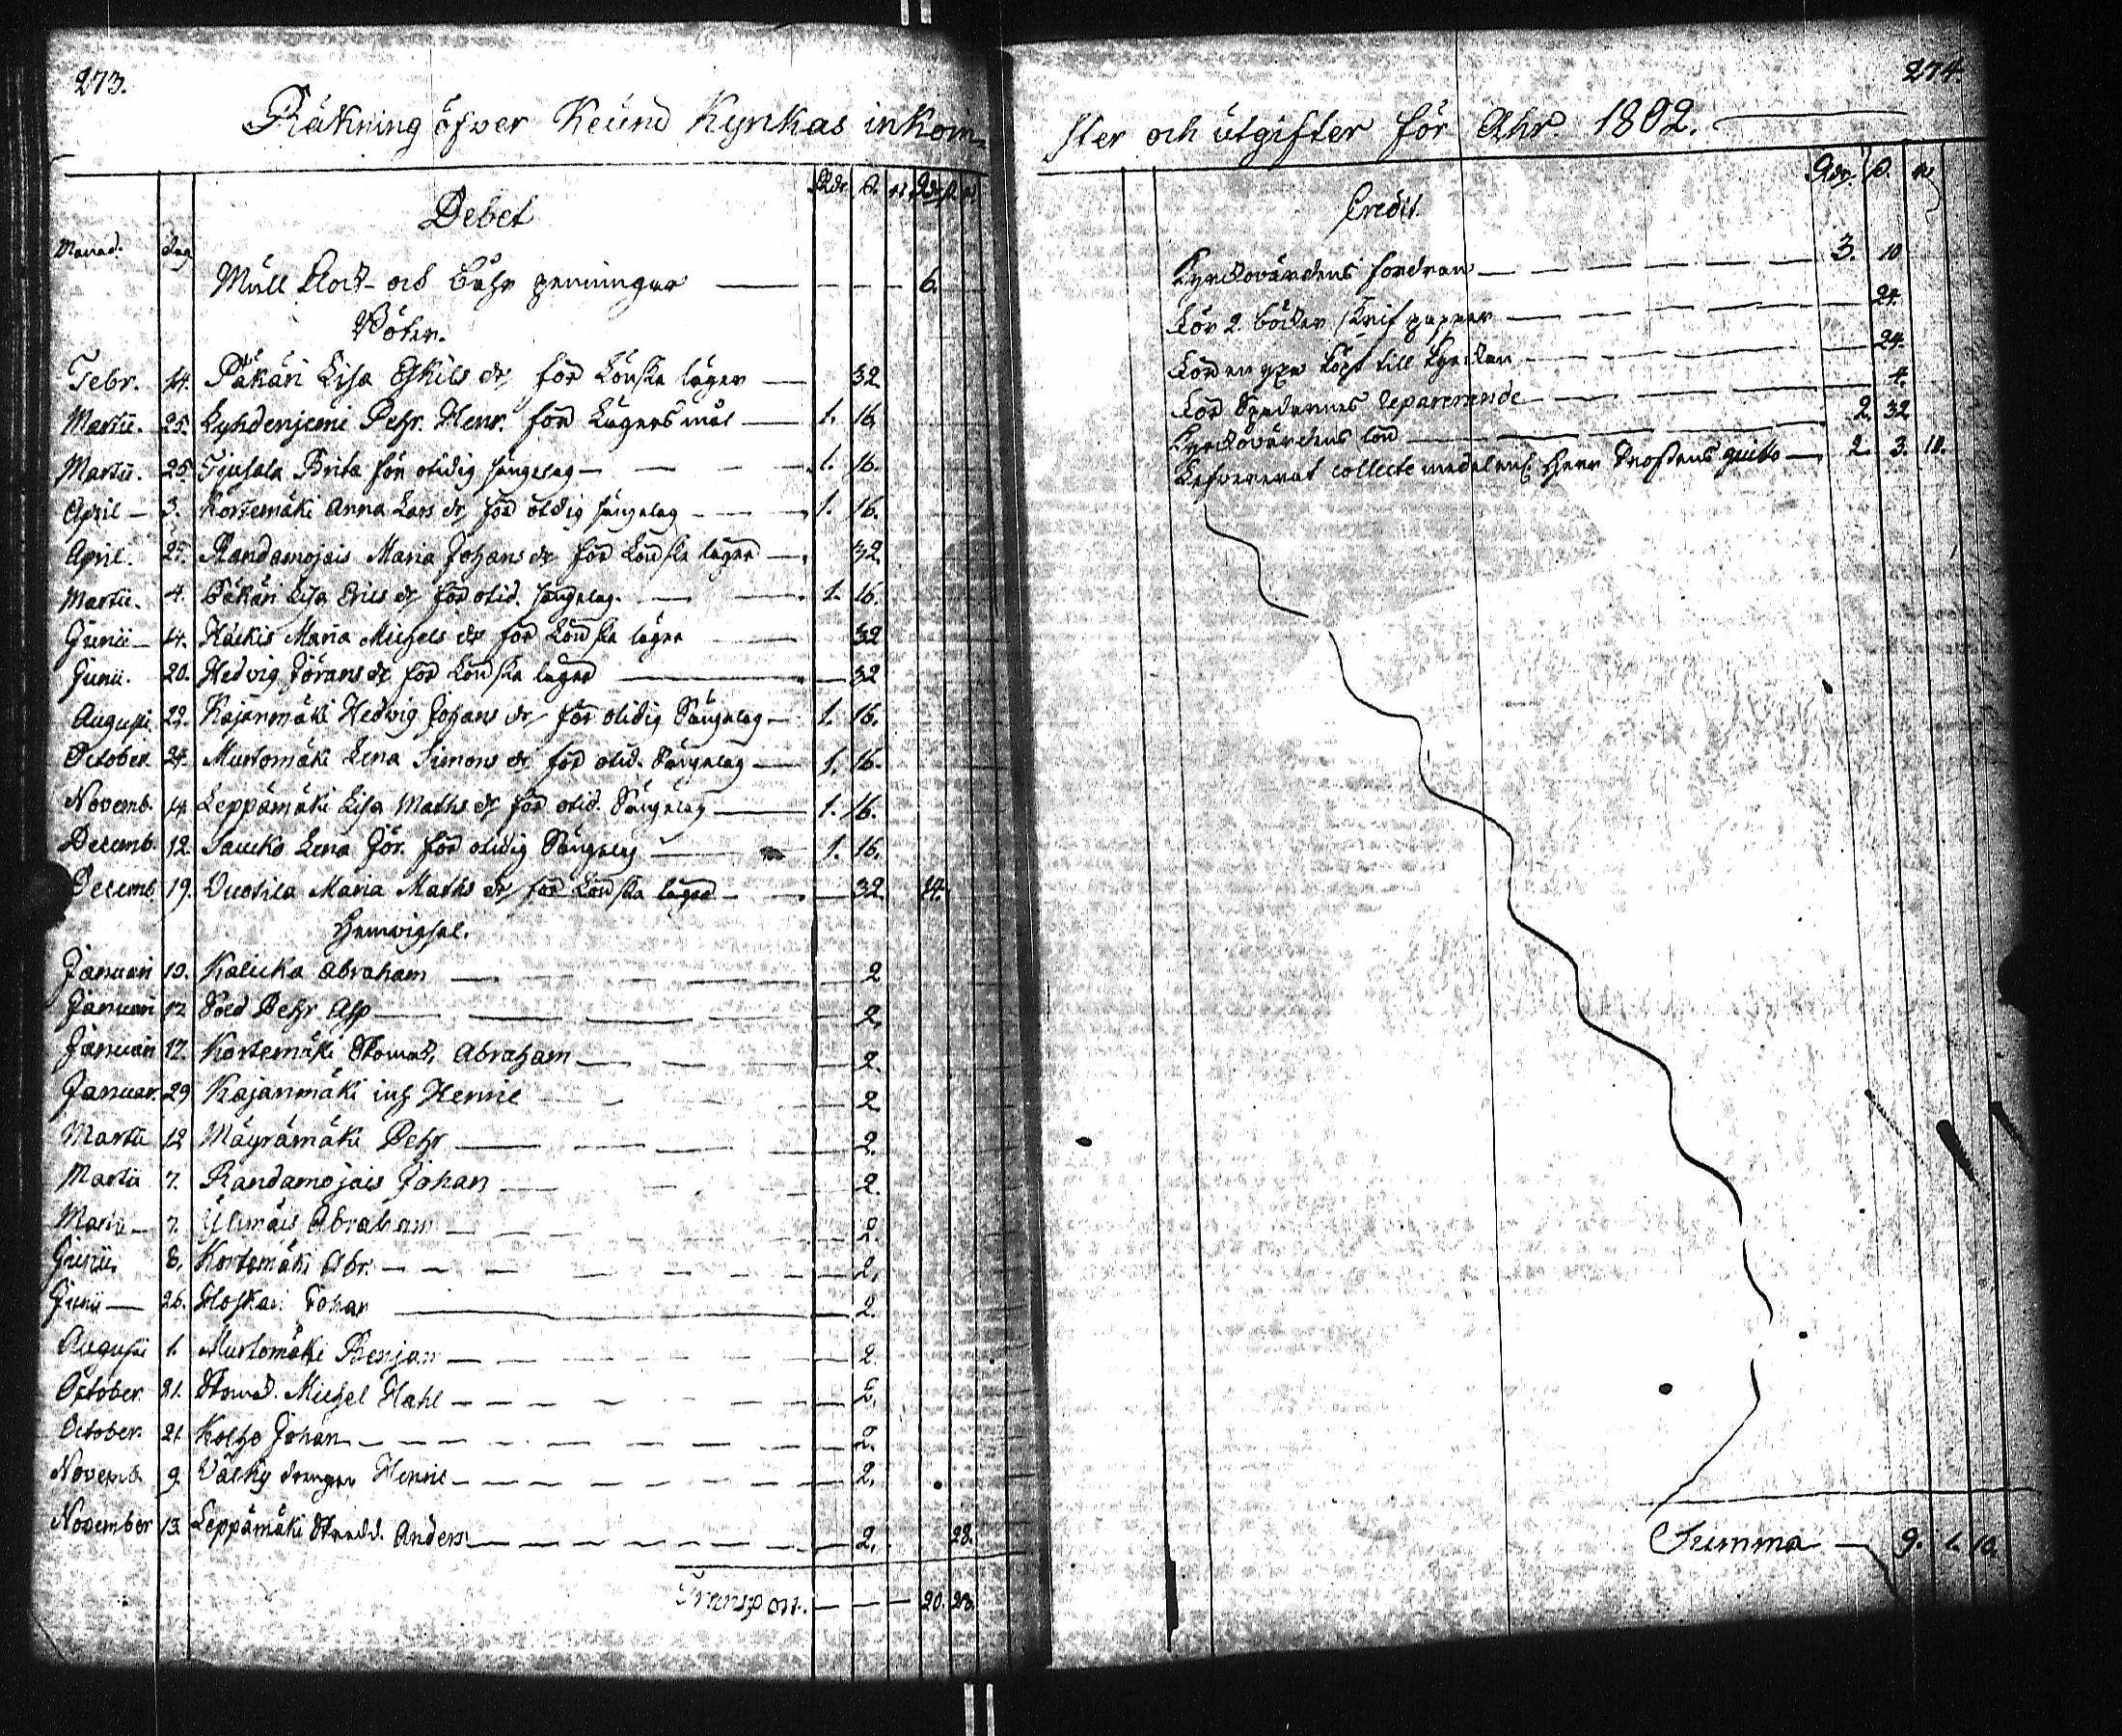 273.
Räkning öfver Keünö Kyrkas inkom-
Rdr ß. rs Rdr ß rs
Debet
Månad. dag
Mull Klock- och Båhr penningar — 6.
Böter.
Febr. 14. Päkäri Lisa Eskils dr för Lönska läger — 32
Martii. 25. Lyhdenjemi Pehr. Henr. för Lägersmål — 1. 16.
Martii. 25. Brita för otidig sängelag — 1. 16.
April — 3. Kortemäki Anna Lars dr för otidig sängelag — 1. 16.
April. 25. Randamojais Maria Johans dr för Lönska läger — 32
Martii. 4. Päkäri Lisa Erics dr för otid. sängelag. — 1. 16.
Junii — 14. Häckis Maria Michels dr för Lönska läger — 32
Junii. 20. Hedvig Jörans dr för Lönska läger — 32
Augusti. 22. Kajanmäki Hedvig Johans dr för otidig Sängelag — 1. 16.
October 24. Murtomäki Lena Simons dr för otid. Sängelag — 1. 16.
Novemb. 14. Leppämäki Lisa Maths dr för otid. Sängelag — 1. 16.
Decemb. 12. Saucko Lena Jör. för otidig Sängelag — 1. 16.
Decemb. 19. Vuotila Maria Maths dr för Lönska läger — 32 14.
Hemvigsel.
Januari 10. Kalicka Abraham — 2
Januari 12 Pehr Asp — 2.
Januari 17. Kortemäki Abraham — 2.
Januar. 29 Kajanmäki inh Henric — 2
Martii 12 Mäyrämäki Pehr — 2.
Martii 7. Randamojais Johan — 2.
Martii — 7. Ylimäis Abraham — 2.
Junii. 8. Kortemäki Abr. — 2.
Junii — 26. Hoskari Johan — 2.
Augusti 1. Murtomäki Benjam — 2.
October. 21. Michel Hahl — 2.
October. 21 Kolho Johan — 2.
Novemb. 9. Välhy drengen Henric — 2.
November 13. Leppämäki Anders — 2. 28.
Transport. — 20. 28.
274.
ster och utgifter för Åhr. 1802.
Rdr. ß. rs
Credit.
Kyrckovärdens fordran — 3. 10
För 2. böcker skrif papper — 24.
För en yxa köpt till Kyrckan — 24.
För reparerande — 4.
Kyrckovärdens lön — 2. 32
Lefvererat collecte medel enl. Herr Prostens quitto — 2. 3. 10.
Summa — 9. 1. 10.